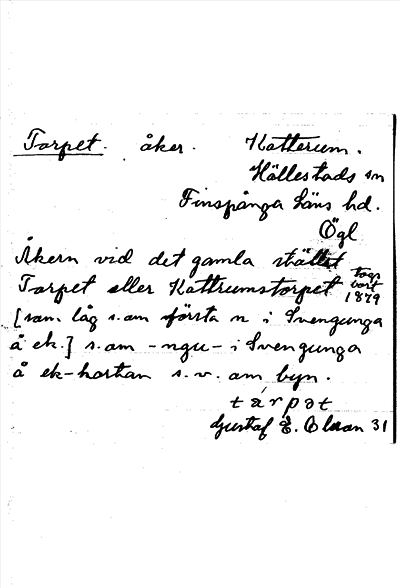 Torpet. åker. Katterum.
Hällestads sn
Finspånga läns hd.
Ögl
Åkern vid det gamla stället
Torpet eller Kattrumstorpet togs bort 1879
[som låg s.om första n i Svengunga
å ek.] s.om -ngu- i Svengunga
å ek-kartan s.v. om byn.
tárpət
Gustaf E. Olsson 31